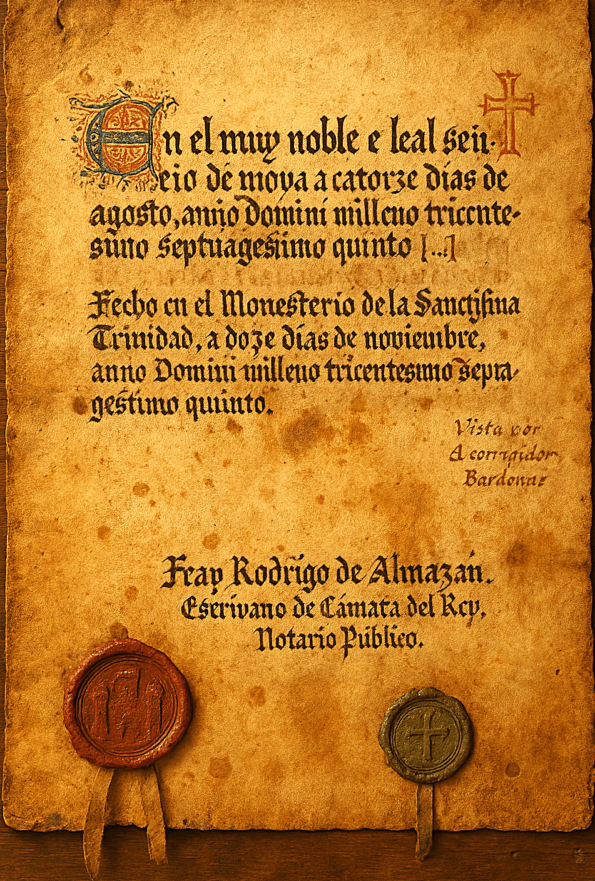 En el muy noble e leal sen-
eio de moya a catorze dias de
agosto, anno Domini milleno tricente-
simo septuagesimo quinto [...]
Fecho en el Monesterio de la Sanctisima
Trinidad, a doze dias de noviembre,
anno Domini milleno tricentesimo septa-
gestimo quinto.
Vista por
A corrigidor
Fray Rodrigo de Almazán.
Escrivano de Cámata del Rey.
Notario Público.